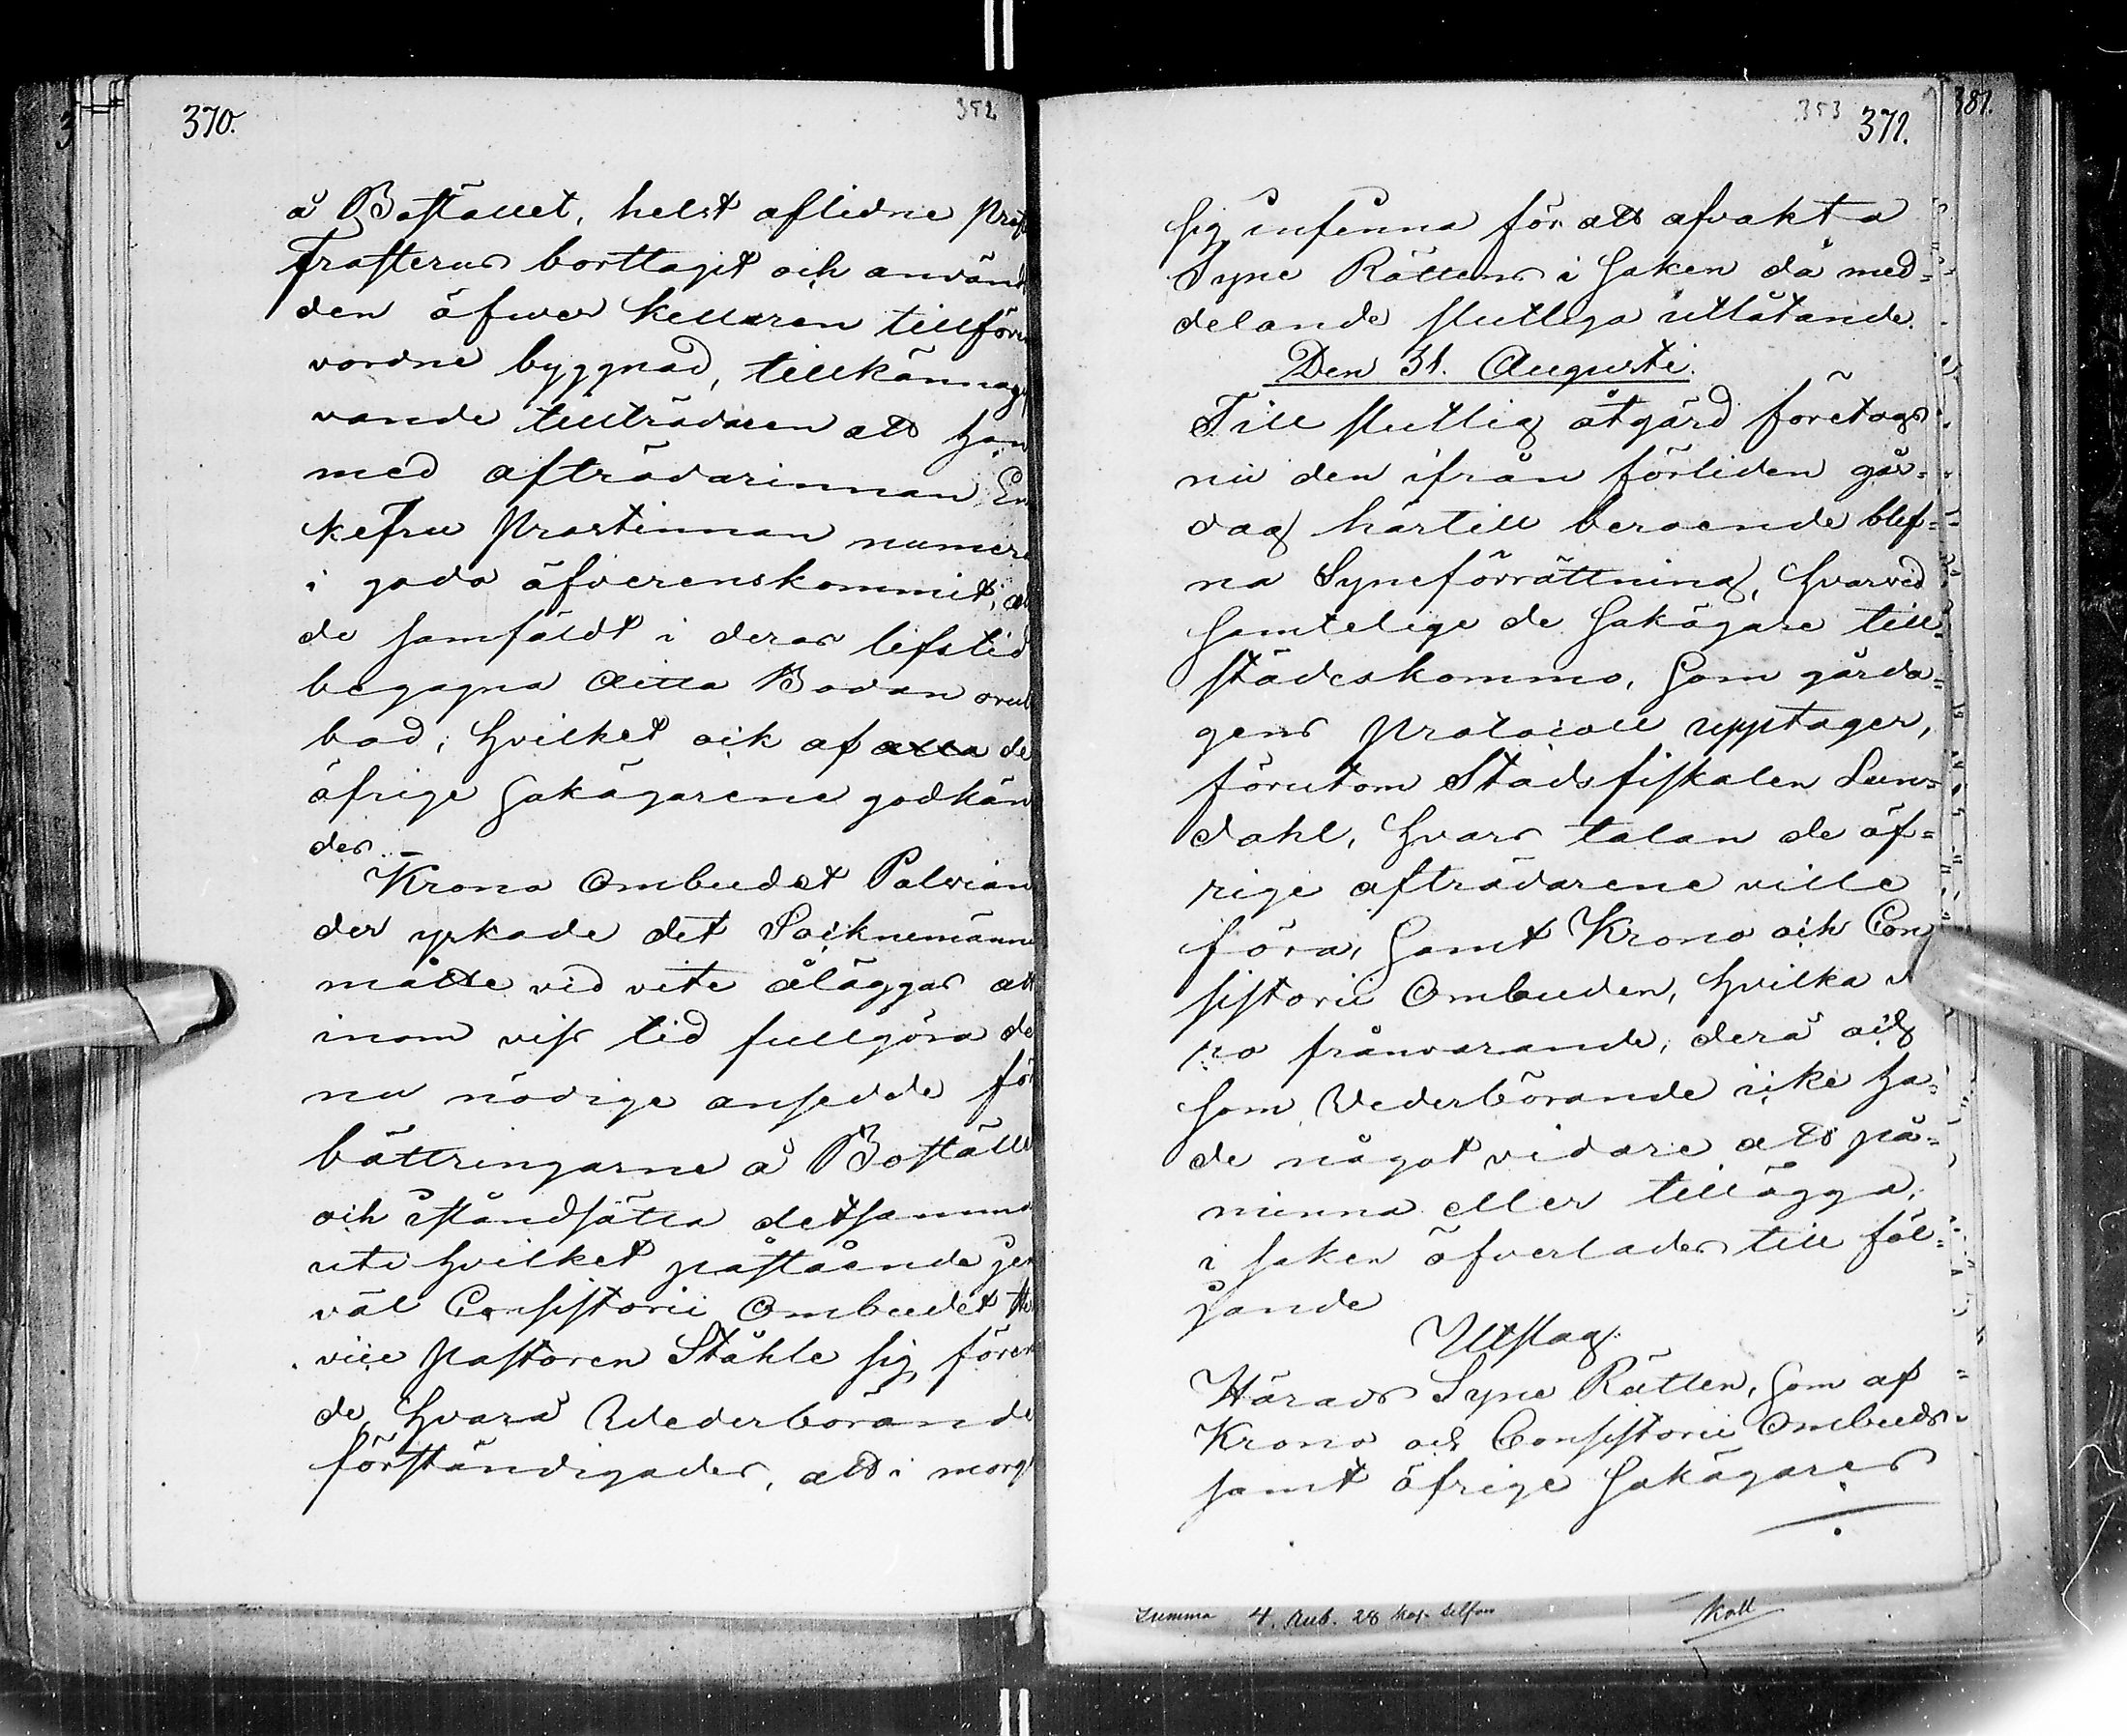 370.
352
å Bostället, helst aflidne Prost
Frosterus borttagit och använd
den öfwer kellaren tillföre
vordne byggnad, tillkännagif
vande tillträdaren att han
med afträdarinnan En
kefru Prostinnan numera
i godo öfverenskommit, at
de samfäldt i deras lifstid
begagna detta Bodan orub
bad; hvilket ock af alla de
öfrige Sakägarene godkän
des.
Krono Ombudet Palvian
der yrkade det Socknemänne
måtte vid vite åläggas att
inom viss tid fullgöra de
nu nödige ansedde för
bättringarne å Boställe
och iståndsätta detsamma
uti hvilket påstående jem
väl Consistorii Ombudet
vice Pastoren Ståhle sig fören
de, hvarå Wederbörande
förständigades, att i morg
353
371.
381.
sig infinna för att afvakta
Syne Rättens i saken då med=
delande slutliga utlåtande.
Den 31. Augusti.
Till slutlig åtgärd företogs
nu den ifrån förliden går=
dag härtill beroende blef=
na Syneförrättning, hvarvid
samtelige de Sakägare till=
städeskommo, som gårda=
gens Protocoll upptager,
förutom Stadsfiskalen Sun=
dahl, hvars talan de öf=
rige afträdarene ville
föra, samt Krono och Con
sistorii Ombuden, hvilka
ro frånvarande; derå och
som Vederbörande icke ha=
de något vidare att på=
minna eller tillägga,
i saken öfverlades till föl=
jande
Utslag.
Härads Syne Rätten, som af
Krono och Consistorii Ombuds
samt öfrige Sakägares
Summa 4. Rub. 28 kop. silfver
Koll